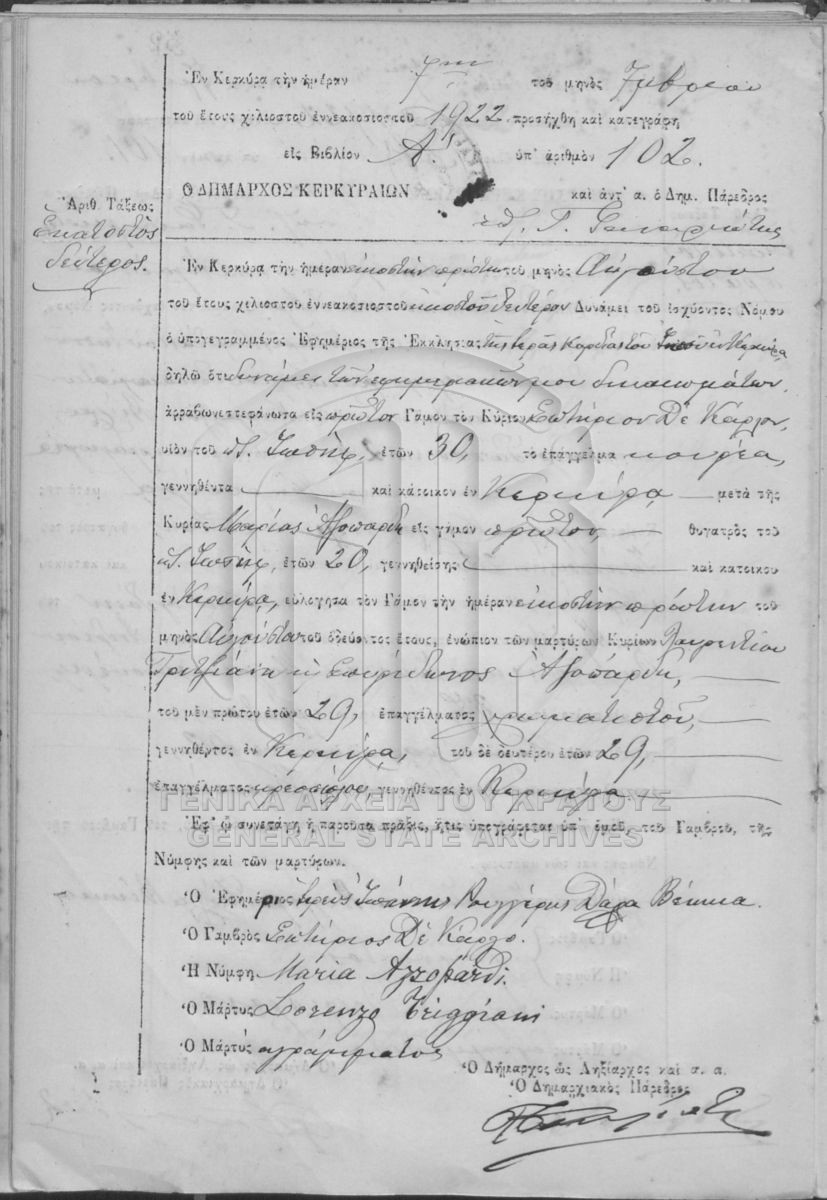 Ἐν Κερκύρᾳ τὴν ἡμέραν 7ην τοῦ μηνὸς 7μβρίου
τοῦ ἔτους χιλιοστοῦ ἐννεακοσιοστοῦ 1922 προσήχθη καὶ κατεγράφη
εἰς Βιβλίον Α' ὑπ' ἀριθμὸν 102.
Ὁ ΔΗΜΑΡΧΟΣ ΚΕΡΚΥΡΑΙΩΝ καὶ ἀντ' α. ὁ Δημ. Πάρεδρος
Ἀριθ. Τάξεως
Ἑκατοστὸς
δεύτερος.
Ἐν Κερκύρᾳ τὴν ἡμέραν εἰκοστὴν πρώτην τοῦ μηνὸς Αὐγούστου
τοῦ ἔτους χιλιοστοῦ ἐννεακοσιοστοῦ εἰκοστοῦ δευτέρου Δυνάμει τοῦ ἰσχύοντος Νόμου
ὁ ὑπογεγραμμένος Ἐφημέριος τῆς Ἐκκλησίας τῆς Ἱερᾶς Καρδίας τοῦ Ἰησοῦ ἐν Κερκύρᾳ
δηλῶ ὅτι δυνάμει τῶν ἐφημεριακῶν μου δικαιωμάτων,
ἀρραβωνιστεφάνωσα εἰς πρῶτον Γάμον τὸν Κύριον Σωτήριον Δὲ Κάρλο,
υἱὸν τοῦ Ἰωσὴφ, ἐτῶν 30, τὸ ἐπάγγελμα κουρέα,
γεννηθέντα καὶ κάτοικον ἐν Κερκύρᾳ μετὰ τῆς
Κυρίας Μαρίας Ἀζοπάρδη εἰς γάμον πρῶτον, θυγατρὸς τοῦ
Ἰωσὴφ, ἐτῶν 20, γεννηθείσης καὶ κατοίκου
ἐν Κερκύρᾳ, εὐλόγησα τὸν Γάμον τὴν ἡμέραν εἰκοστὴν πρώτην τοῦ
μηνὸς Αὐγούστου τοῦ ὁδεύοντος ἔτους, ἐνώπιον τῶν μαρτύρων Κυρίων Λαυρεντίου
Τριτζιάνη κ Σπυρίδωνος Ἀζοπάρδη,
τοῦ μὲν πρώτου ἐτῶν 29, ἐπαγγέλματος
γεννηθέντος ἐν Κερκύρᾳ, τοῦ δὲ δευτέρου ἐτῶν 29,
ἐπαγγέλματος κρεοπώλου, γεννηθέντος ἐν Κερκύρᾳ
ΓΕΝΙΚΑ ΑΡΧΕΙΑ ΤΟΥ ΚΡΑΤΟΥΣ
Ἐφ' ᾧ συνετάγη ἡ παροῦσα πρᾶξις, ἥτις ὑπογράφεται ὑπ' ἐμοῦ, τοῦ Γαμβροῦ, τῆς
GENERAL STATE ARCHIVES
Νύμφης καὶ τῶν μαρτύρων.
Ὁ Ἐφημέριος Ἱερεὺς Ἰωάννης Ρουγγέρης Δάλα Βέκκια.
Ὁ Γαμβρὸς Σωτήριος Δὲ Κάρλο.
Ἡ Νύμφη Maria Azzopardi.
Ὁ Μάρτυς Lorenzo Triggiani
Ὁ Μάρτυς ἀγράμματος
Ὁ Δήμαρχος ὡς Ληξίαρχος καὶ α. α.
Ὁ Δημαρχιακὸς Πάρεδρος